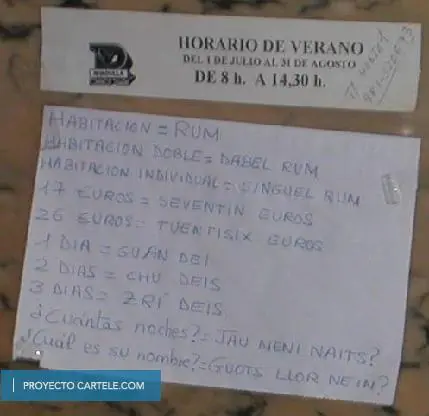 HORARIO DE VERANO
DEL 1 DE JULIO AL 31 DE AGOSTO
DE 8 h. A 14,30 h.
HABITACION = RUM
HABITACION DOBLE = DABEL RUM
HABITACION INDIVIDUAL = SINGUEL RUM
17 EUROS = SEVENTIN EUROS
26 EUROS = TUENTISIX EUROS
1 DIA = GUAN DEI
2 DIAS = CHU DEIS
3 DIAS = ZRI DEIS
¿Cuántas noches? = JAU MENI NAITS?
¿Cuál es su nombre? = GUOTS LLOR NEIN?
PROYECTO CARTELE.COM